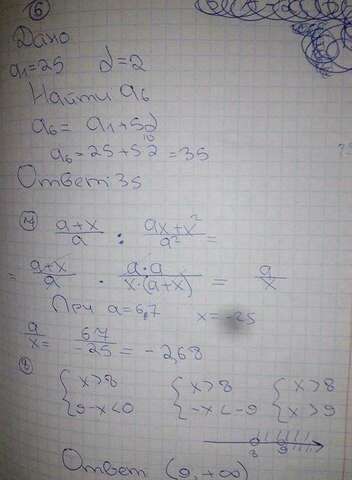 6
Дано
a₁=25 d=2
Найти a₆
a₆= a₁+5d
a₆=25+5·2=35
10
Ответ:35
7 (a+x)/a : (ax+x²)/a² =
= (a+x)/a · (a·a)/(x·(a+x)) = a/x
При a=6,7 x=-25
a/x= 67/-25 = -2,68
8
{ x>8 { x>8 { x>8
{ 9-x<0 { -x<-9 { x>9
8 9
Ответ (9,+∞)